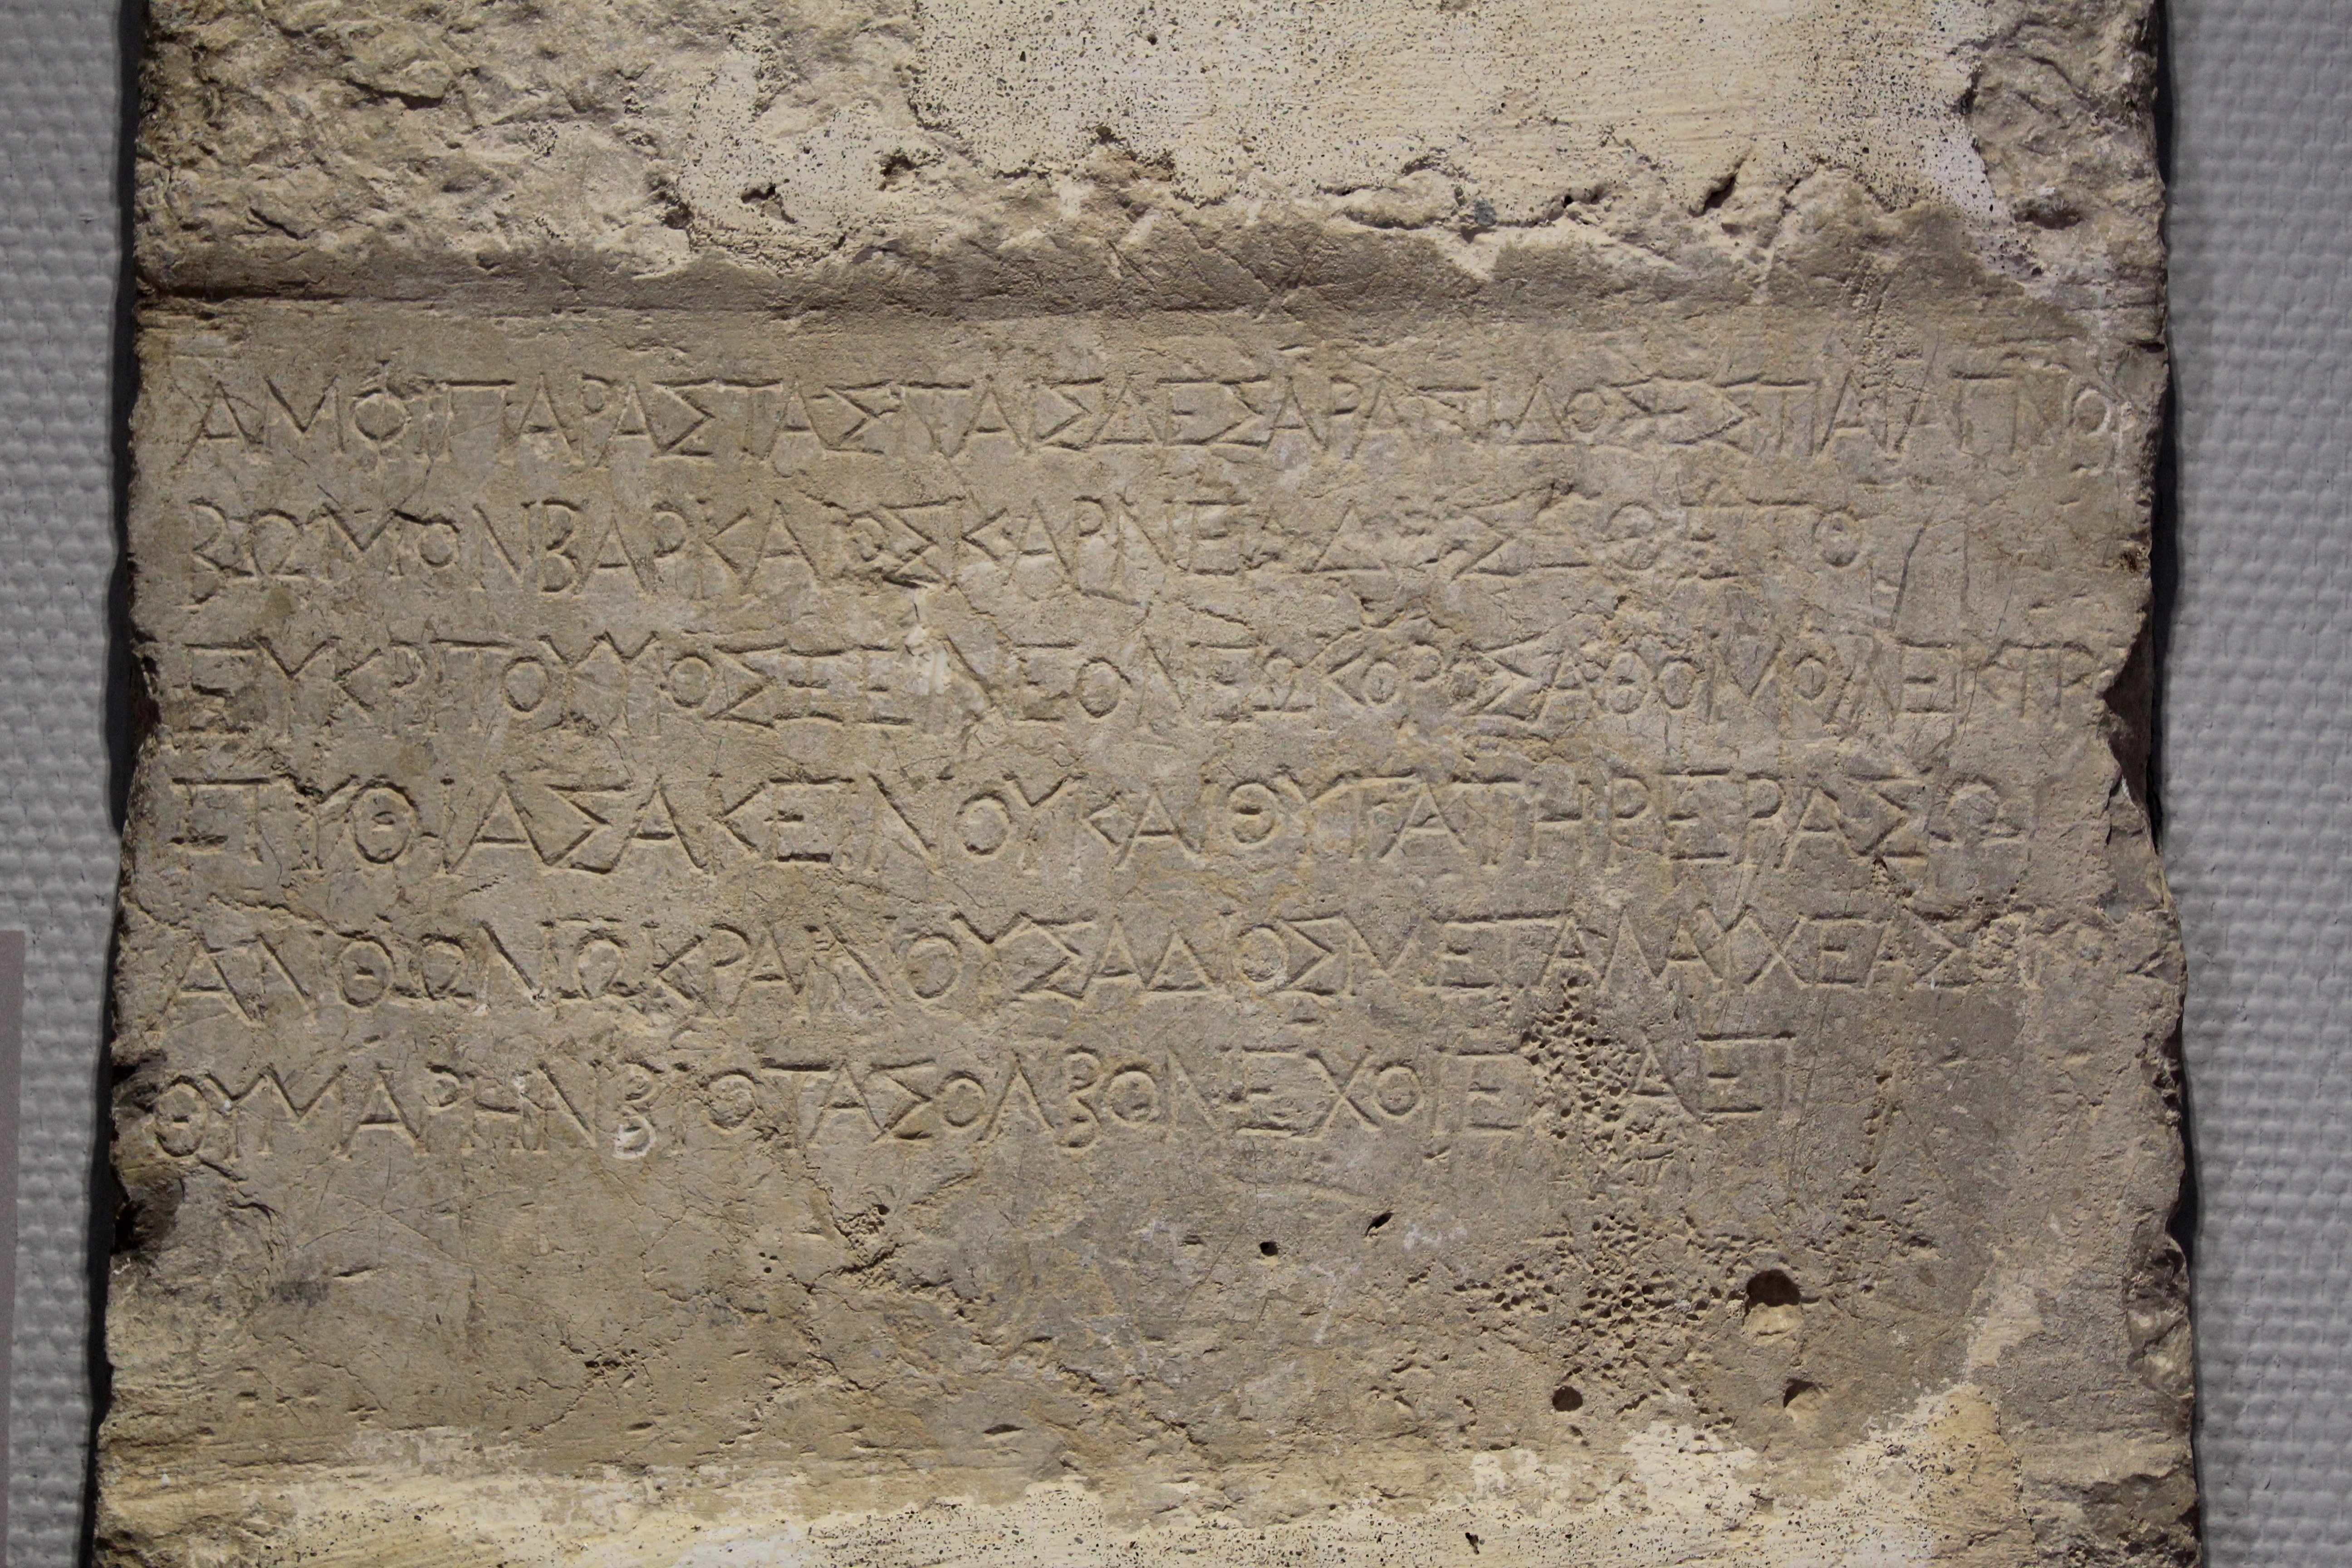 ΑΜΟΙΠΑΡΑΣΤΑΣΤΑΙΣΔΕΣΑΡΑΠΙΔΟΣΕΣΤΙΑΙΑΓΝΟ
ΒΩΜΟΝΒΑΡΚΑΙΟΣΚΑΡΝΕΑΔΑΣΕΘΕΤΟ
ΕΥΚΡΙΤΟΥΥΙΟΣΞΕΙΝΕΟΝΕΩΚΟΡΟΣΑΘΟΜΟΛΕΚΤΡ
ΠΥΘΙΑΣΑΚΕΙΝΟΥΚΑΙΘΥΓΑΤΗΡΕΡΑΣΩ
ΑΝΘΩΝΩΚΡΑΙΝΟΥΣΑΔΙΟΣΜΕΓΑΛΑΥΧΕΑΣ
ΘΥΜΑΡΗΝΒΙΟΤΑΣΟΛΒΟΝΕΧΟΙΕΝΑΕΙ